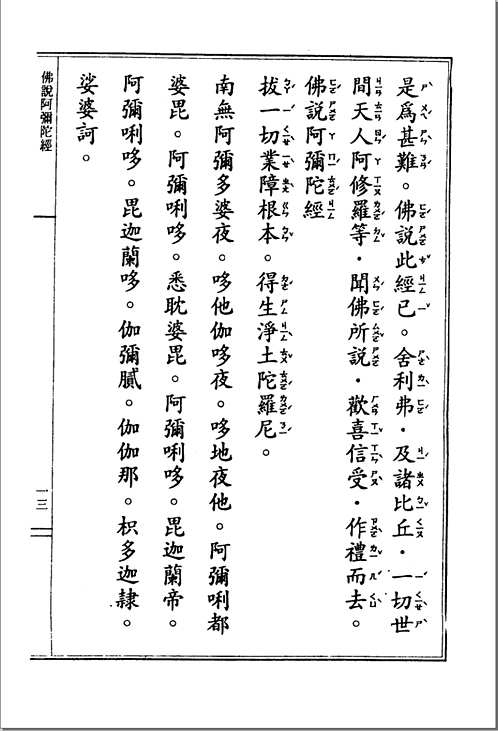 是爲甚難。佛說此經已。舍利弗．及諸比丘．一切世
間天人阿修羅等．聞佛所說．歡喜信受．作禮而去。
佛說阿彌陀經
拔一切業障根本。得生淨土陀羅尼。
南無阿彌多婆夜。哆他伽哆夜。哆地夜他。阿彌唎都
婆毘。阿彌唎哆。悉耽婆毘。阿彌唎哆。毘迦蘭帝。
阿彌唎哆。毘迦蘭哆。伽彌膩。伽伽那。枳多迦隸。
娑婆訶。
佛說阿彌陀經
一三